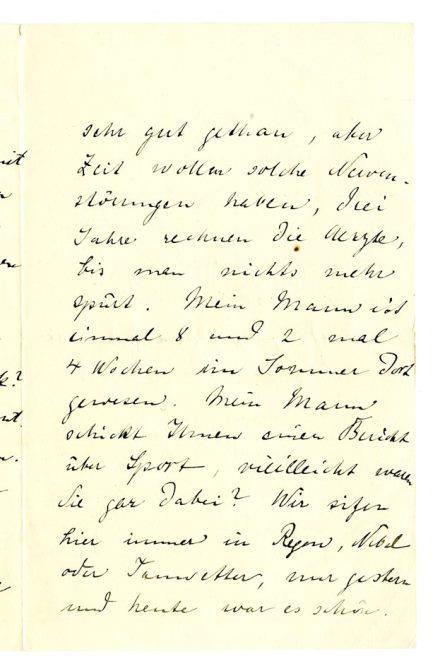 sehr gut gethan, aber
Zeit wollen solche Nerven-
störungen haben, drei
Jahre rechnen die Aerzte,
bis man nichts mehr
spürt. Mein Mann ist
einmal 8 und 2 mal
4 Wochen im Sommer dort
gewesen. Mein Mann
schickt Ihnen einen Bericht
über Sport, vielleicht waren
Sie gar dabei? Wir sitzen
hier immer in Regen, Nebel
oder Tauwetter, nur gestern
und heute war es schön.